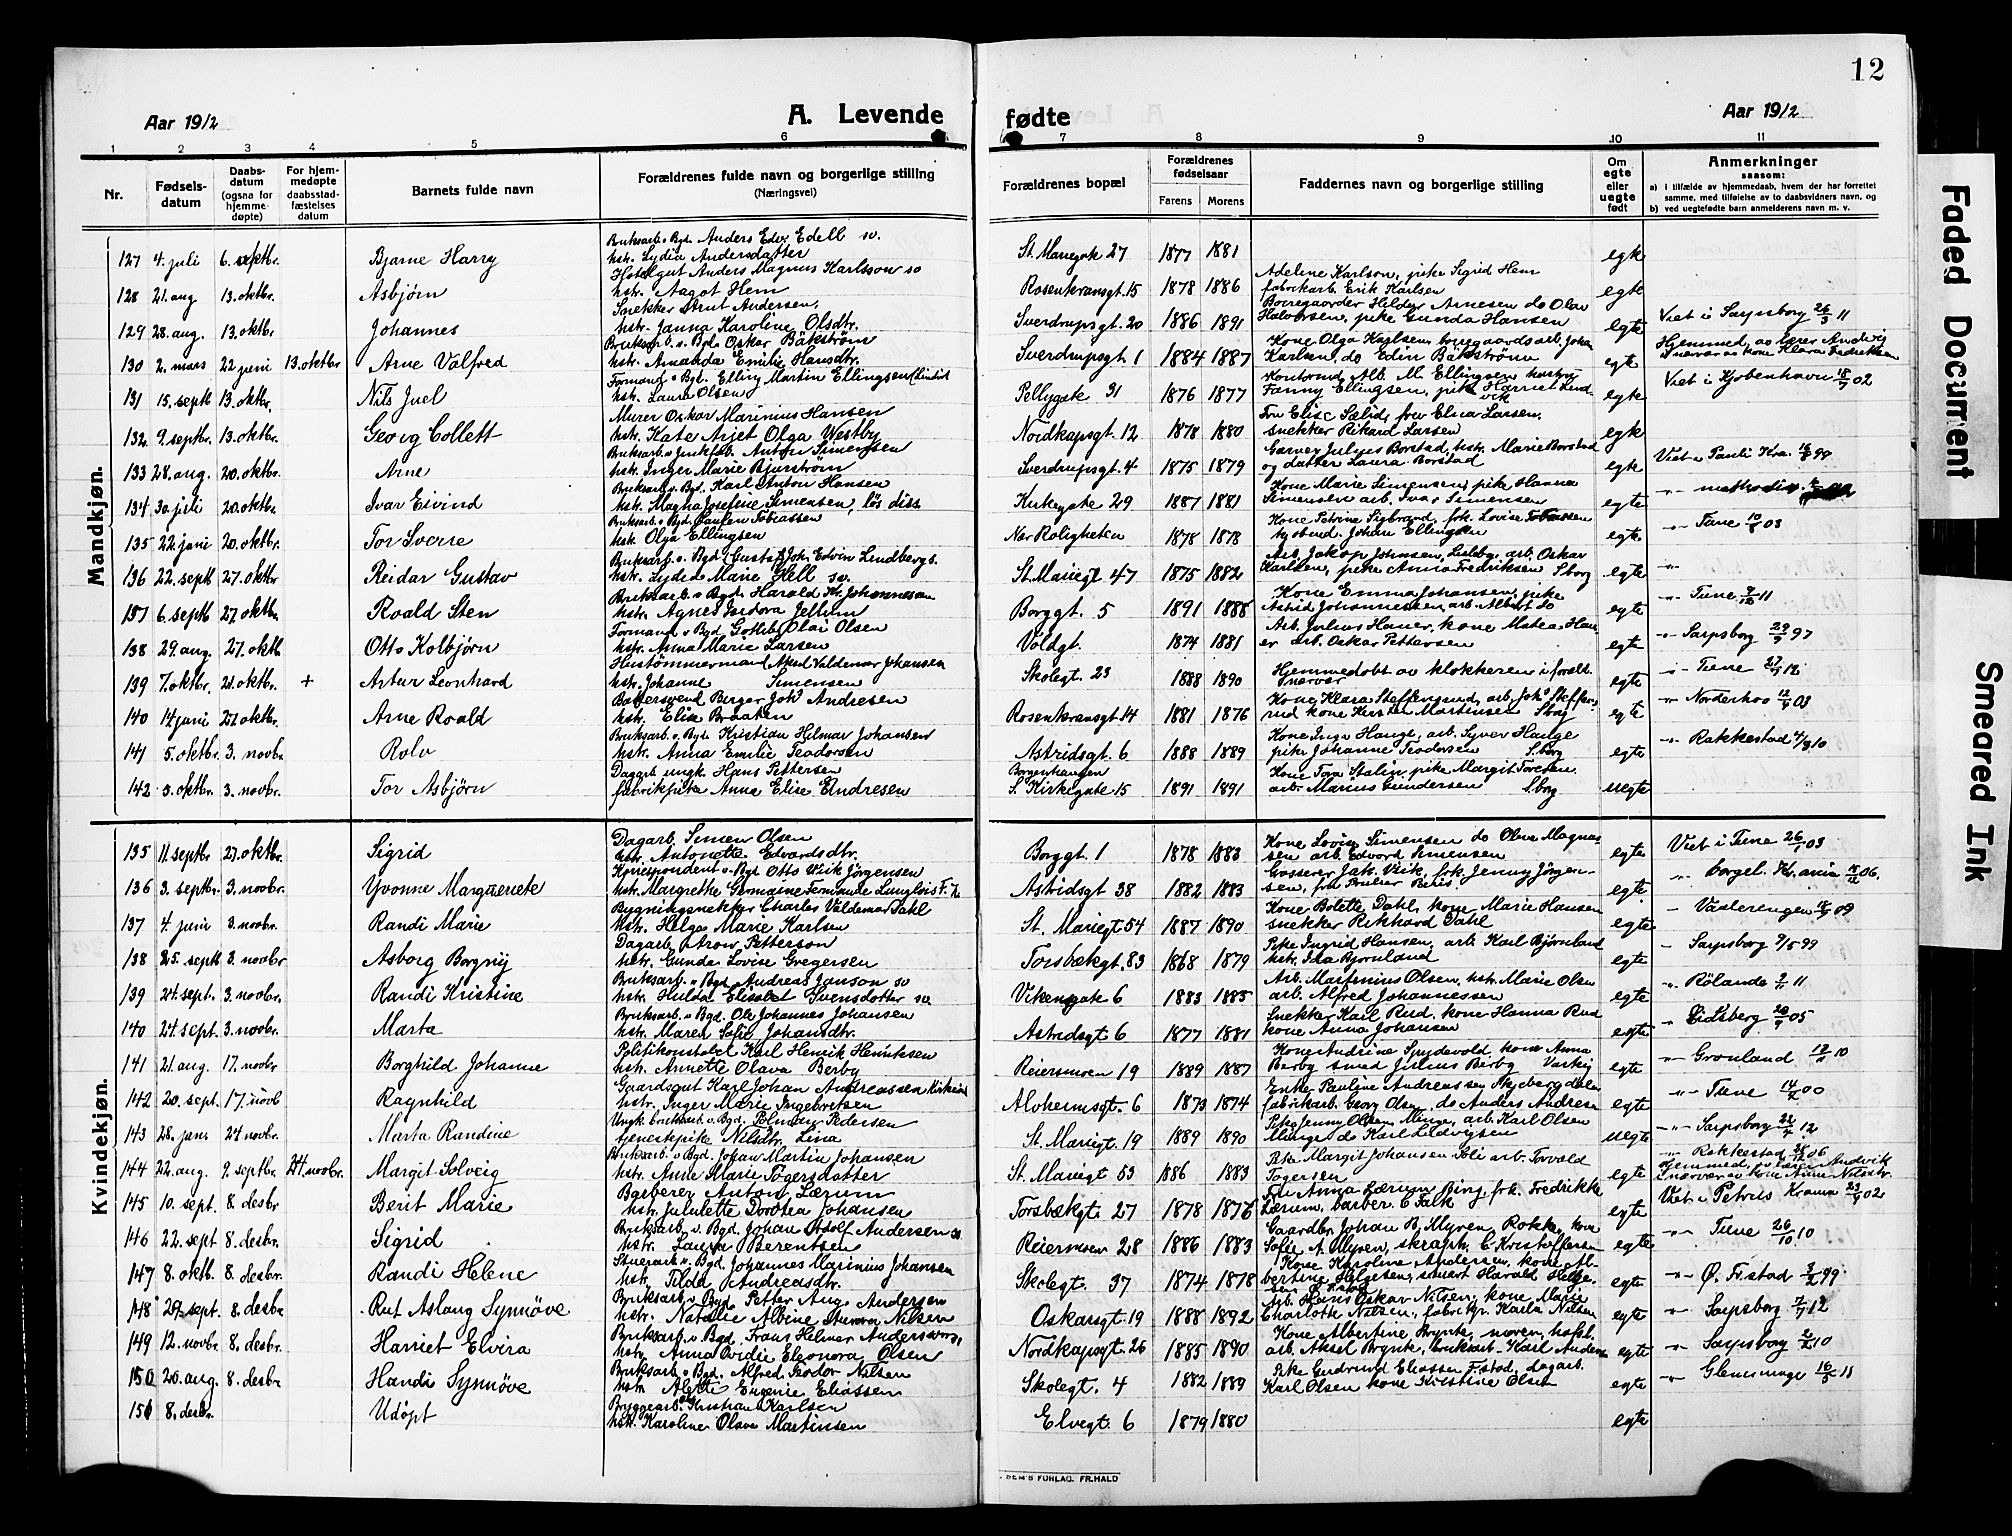 12
Aar 1912
A. Levende fødte
Aar 1912
1 2 3 4 5 6 7 8 9 10 11
Nr.
Fødsels-datum
Daabs-datum (ogsaa for hjemme-døpte)
For hjem-medøpte daabsstad-fæstelses datum
Barnets fulde navn
Forældrenes fulde navn og borgerlige stilling
(Næringsvei)
Forældrenes bopæl
Forældrenes fødselsaar
Farens Morens
Faddernes navn og borgerlige stilling
Om egte eller uegte født
Anmerkninger
saasom:
a) i tilfælde av hjemmedaab, hvem der har forrettet
samme, med tilføielse av to daabsvidners navn, og
b) ved uegtefødte barn anmelderens navn m. v.
Mandkjøn.
127 4. juli 6. septbr. Bjarne Harry Bruksarb. o Bgd. Anders Edv. Edell sv. hstr. Lydia Andersdatter St. Mariegate 27 1877 1881 egte
128 21. aug 13. oktbr. Asbjørn Anders Magnus Karlsson sv hstr. Aagot Hem Rosenkransgt. 15 1878 1886 Adeline Karlson, pike Sigrid Hem fabrikarb. Erik Karlsen egte
129 28. aug. 13. oktbr. Johannes Snekker Arnt Andersen, hstr. Janna Karoline Olsdtr. Sverdrupsgt. 20 1886 1891 Arnesen do Olav Halvorsen, pike Gunda Hansen egte Viet i Sarpsborg 26/3 11
130 2. mars 22 juni 13. oktbr Arne Valfred Bruksarb. o. Bgd. Oskar Bäkström hstr. Amanda Emilie Hansdtr. Sverdrupsgt 1 1884 1887 Kone Olga Karlsen, borregaardsarb. Johan Karlsen, do Edin Bäkström egte Hjemmed. av lærer Andvig
131 15. septb 13. oktbr. Nils Juel Formand o Bgd. Elling Martin Ellingsen hstr. Laura Olsen Pellygate 31 1876 1877 M. Ellingsen, hustru Fanny Ellingsen, pike Harriet Lindvik egte Viet i Kjøbenhavn 18/7 02
132. 9. septbr. 13. oktbr. Georg Collett Murer Oskar Marinius Hansen hstr. Kate Arjet Olga Westby Nordkapsgt. 12 1878 1880 Fru Elise Sælid, frue Elna Larsen, snekker Rikard Larsen egte
133 28. aug. 20. oktbr. Arne Anton Simensen hstr. Inger Marie Bjurstrøm Sverdrupsgt. 4 1875 1879 Garver Julius Borstad, hstr. Marie Borstad og datter Laura Borstad egte Viet i Pauli Kra. 99
134 30. juli 20. oktbr Ivar Eivind Bruksarb. o. Bgd. Karl Anton Hansen hstr. Magna Josefine Simensen, løs diss. Kirkegate 29 1887 1881 Kone Marie Simensen, pike Hanna Simensen arb. Ivar Simensen egte
135 22. juni 20. oktbr. Tor Sverre Bruksarb. o Bgd. Tobiassen hstr. Olga Ellingsen Nær Roligheten 1878 1878 Kone Petrine Sigbrand, frk. Lovise Tobiassen Johan Ellingsen egte -"- Tune 10/5 03
136 22. septb 27. oktbr Reidar Gustav Bruksarb. o. Bgd. Gustaf Joh. Edvin Lindberg s. hstr. Lydel Marie Hell sv. St. Mariegt 47 1875 1882 Arb. Jakop Johnsen, Lisleby, arb. Oskar Karlsen, pike Anna Fredriksen Sborg egte -"-
137 6. septb 27. oktbr. Roald Sten Bruksarb. o Bgd. Harald Johannesen hstr. Agnes Isidora Jellum Borggt. 5 1891 1888 Kone Emma Johansen, pike Astrid Johannessen, arb. Albert do egte -"- Tune 11
138 29. aug. 27. oktb Otto Kolbjørn Formand o Bgd. Gotlieb Olai Olsen hstr. Anna Marie Larsen Voldgt. 1874 1881 Arb. Julius Hauer, kone Matea Hauer arb. Oskar Pettersen egte -"- Sarpsborg 29/9 97
139 7. oktbr. 21. oktbr. + Artur Leonhard Hustømmermand Axel Valdemar Johansen hstr. Johanne Simensen Skolegt. 23 1888 1890 Hjemmedøbt av klokkeren egte -"- Tune 12
140 14 juni 27. oktbr. Arne Roald Bakersvend Birger Johs Andresen hstr. Elise Braaten Rosenkransgt. 14 1881 1876 Kone Klara Steffensrud, arb. Johs Steffensrud kone Kirsten Martensen Sborg egte -"- Norderhov 03
141 5. oktbr. 3. novbr. Rolv Bruksarb. o. Bgd. Kristian Hilmar Johansen hstr. Anna Emilie Teodorsen Astridsgt. 6 1888 1889 Kone Inga Hauge, arb. Syver Hauge pike Johanne Teodorsen Sborg egte -"- Rakkestad 4/9 10
142 5. oktbr. 3. novbr. Tor Asbjørn Dagarb. ungk. Hans Pettersen fabrikpike Anna Elise Endresen Borgenhaugen S. Kirkegate 15 1891 1891 Kone Tora Stalin, pike Margit Toresen arb. Marius Gundersen Sborg uegte
Kvindekjøn.
135 11. septbr 27. oktbr. Sigrid Dagarb. Simen Olsen hstr. Antonette Edvardsdtr. Borggt. 1 1878 1883 Kone Lovise Simensen do Olava Magnussen arb. Edvard Simensen egte Viet i Tune 26/1 03
136 3. septbr. 3. novbr. Yvonne Margueriete Korrespondent o. Bgd Otto Wiik Jørgensen hstr. Margrethe Germaine Langlois Astridsgt 38 1882 1883 Jak. Wiik, frk. Jenny Jørgensen, egte. -"- borgel. Kr.ania 06.
137 4. juni 3. novbr. Randi Marie Bygningssnekker Charles Valdemar Dahl hstr. Helga Marie Karlsen St. Mariegt 54 1887 1890 Kone Bolette Dahl, kone Marie Hansen snekker Rikhard Dahl egte - Vaalerengen 09
138 25. septb 3. novbr Asborg Borgny Dagarb. Aron Petterson hstr. Gunda Lovise Gregersen Torsbækgt. 83 1868 1879 Pike Ingrid Hansen, arb. Karl Bjørnland hstr. Ida Bjørnland egte - Sarpsborg 9/5 99
139 24. sept. 3. novbr. Randi Kristine Bruksarb. o Bgd Andreas Janson sv hstr. Hulda Elisabet Svensdotter sv. Vikensgate 6 1883 1885 Arb. Martinius Olsen, hstr. Marie Olsen arb. Alfred Johannessen egte -"- Rølanda 11
140 24. sept. 3. novbr. Marta Bruksarb. o Bgd. Ole Johannes Johansen hstr. Maren Sofie Johansdtr. Astridsgt 6 1877 1881 Snekker Karl Rud, kone Hanna Rud kone Anna Johansen egte -"- Eidsberg 05
141 21. aug. 17. novbr Borghild Johanne Politikonstabel Karl Henrik Henriksen hstr. Annette Olava Berby Reiersmoen 19 1889 1887 Kone Andrine Spydevold, kone Anna Berby smed Julius Berby egte -"- Grønland 10
142 20. sept. 17. novb Ragnhild Gaardsgut Karl Johan Andreassen hstr. Inger Marie Ingebretsen Alvheimsgt. 6 1873 1874 Enke Pauline Andreassen Skjebergdalen fabrikarb. Georg Olsen, do Anders Andresen egte -"- Tune 00
143 28. janr 24. novbr. Marta Randine Ungk. bruksarb. o. Bgd. Pedersen tjenestepike Nilsdtr. Lina St. Mariegt. 19 1889 1890 Pike Jenny Olsen, Minge, arb. Karl Olsen Minge do Karl Ludvigsen uegte -"- Sarpsborg 22/7 12
144 22. aug. 9. septbr 24. novbr. Margit Solveig Bruksarb. o. Bgd. Johan Martin Johansen hstr. Anna Marie Togersdatter St. Mariegt 53 1886 1883 Pike Margit Johansen, arb. Torvald Togersen egte -"- Rakkestad 06 Hjemmed. av lærer Andvik
145 10. sept. 8. desbr. Berit Marie Barberer Anton Lærum hstr. Juliette Dorotea Johansen Torsbækgt. 27 1878 1876 Fru Anna Lærum Bing, frk. Fredrikke Lærum, barber. C. Falk egte Viet i Petrus Krania 23/9 02
146 22. sept 8. desbr. Sigrid Bruksarb. o. Bgd. Johan Adolf Andersen s. hstr. Laura Berentsen Reiersmoen 28 1886 1883 Gaardbr. Johan B. Myren, Rokke, kone Sofie A. Myren, C. Kristoffersen egte -"- Tune 26/10 10
147 8. oktb. 8. desbr. Randi Helene Stuerarb. o. Bgd. Johannes Marinius Johansen hstr. Tilda Andreasdtr. Skolegt. 37 1874 1878 Kone Karoline Andersen, kone Albertine Helgesen, stuert Harald Helgesen egte -"- Ø. Fr.stad 99
148 29. sept. 8. desbr Rut Aslaug Synnøve Bruksarb. o. Bgd. Petter Aug. Andersen hstr. Natalie Albine Aurora Nilsen Oskarsgt. 19 1888 1892 Arb. Hans Oskar Nilsen, kone Marie Charlotte Nilsen, fabrikpr. Karla Nilsen egte -"- Sarpsborg 7/7 12
149 12. novbr 8. desbr. Harriet Elvira Bruksarb. o. Bgd. Frans Helmer Andersson, hstr. Anna Ovidie Eleonora Olsen Nordkapsgt. 26 1885 1890 Kone Albertine Brynte, arb. Aksel Brynte, bruksarb. Karl Andersen egte -"- Sarpsborg 10
150 20. aug. 8. desbr Handi Synnøve Bruksarb. o. Bgd. Alfred Teodor Nilsen hstr. Alette Eugenie Eliassen Skolegt. 4 1882 1889 Pike Gudrund Eliassen F.stad, dagarb. Karl Olsen kone Kristine Olsen egte -"- Glemminge 16/5 11
151 8. desbr. Udøpt Byggearb. Kristian Karlsen hstr. Karoline Olava Martinsen Elvegt. 6 1879 1880 egte
FORLAG. FR.HALD
Faded Document
Smeared Ink